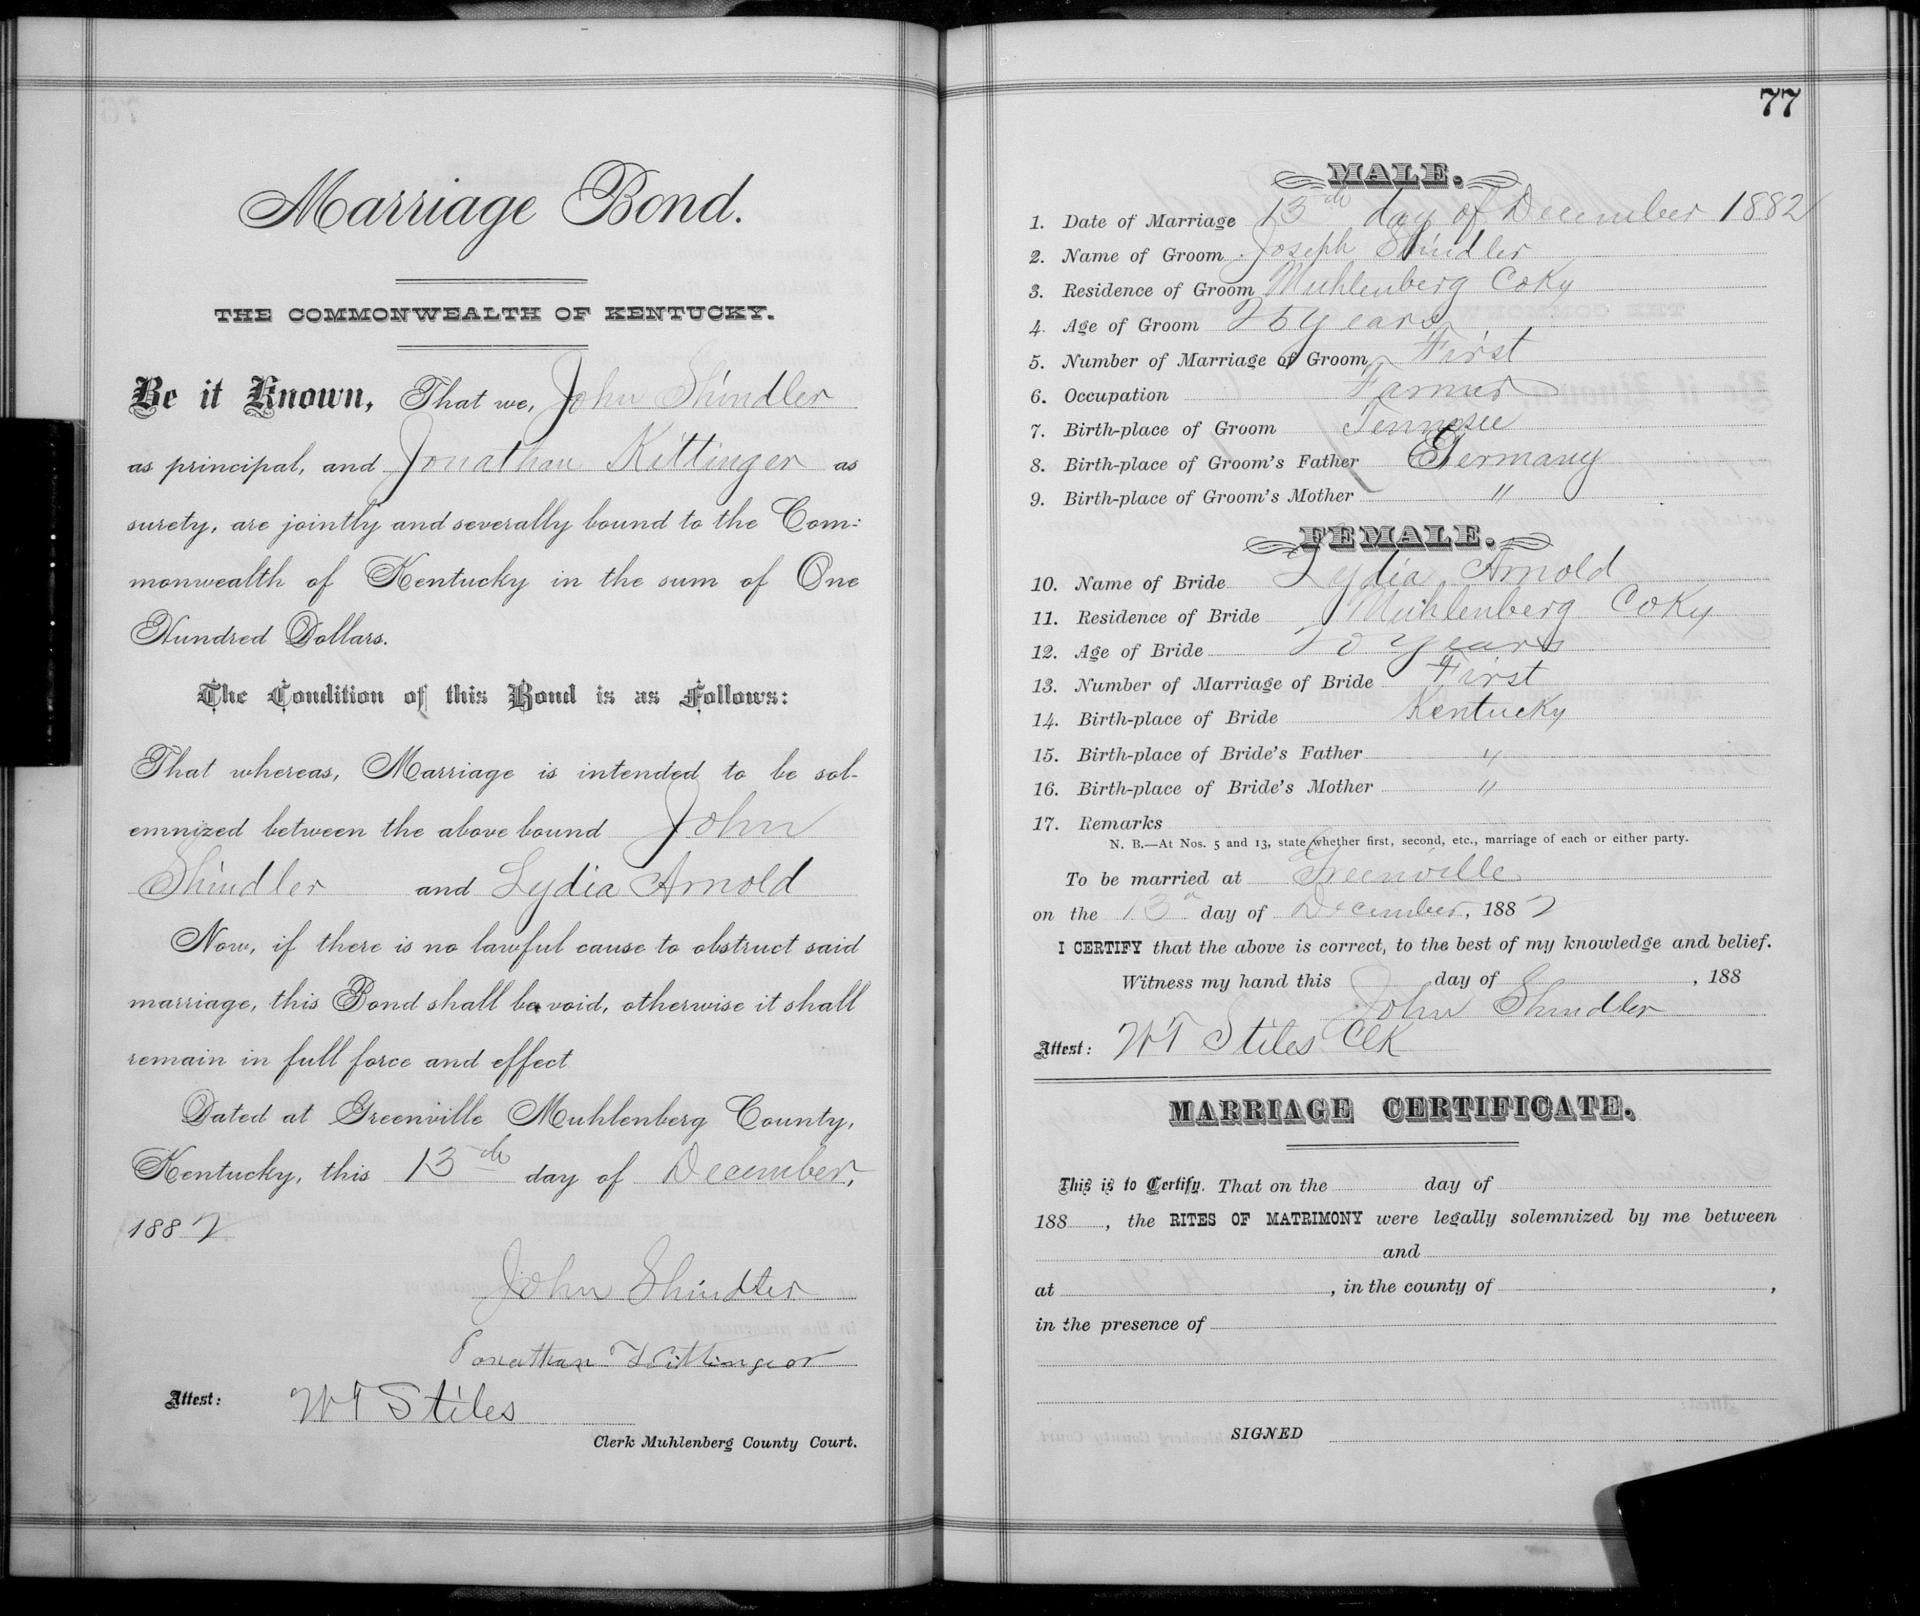 Marriage Bond.
THE COMMONWEALTH OF KENTUCKY.
Be it Known, That we, John Shindler
as principal, and Jonathan Kittinger as
surety, are jointly and severally bound to the Com-
monwealth of Kentucky in the sum of One
Hundred Dollars.
The Condition of this Bond is as Follows:
That whereas, Marriage is intended to be sol-
emnized between the above bound John
Shindler and Lydia Arnold
Now, if there is no lawful cause to obstruct said
marriage, this Bond shall be void, otherwise it shall
remain in full force and effect
Dated at Greenville Muhlenberg County,
Kentucky, this 13th day of December,
1882
John Shindler
Jonathan Kittinger
Attest: WT Stiles
Clerk Muhlenberg County Court.
77
MALE.
1. Date of Marriage 13th day of December 1882
2. Name of Groom Joseph Shindler
3. Residence of Groom Muhlenberg Co Ky
4. Age of Groom years
5. Number of Marriage of Groom First
6. Occupation Farmer
7. Birth-place of Groom Tennesee
8. Birth-place of Groom's Father Germany
9. Birth-place of Groom's Mother "
FEMALE.
10. Name of Bride Lydia Arnold
11. Residence of Bride Muhlenberg Co Ky
12. Age of Bride 20 years
13. Number of Marriage of Bride First
14. Birth-place of Bride Kentucky
15. Birth-place of Bride's Father "
16. Birth-place of Bride's Mother "
17. Remarks
N. B.—At Nos. 5 and 13, state whether first, second, etc., marriage of each or either party.
To be married at Greenville
on the 13th day of December, 1882
I CERTIFY that the above is correct, to the best of my knowledge and belief.
Witness my hand this day of , 188
John Shindler
Attest: WT Stiles Clk
MARRIAGE CERTIFICATE.
This is to Certify. That on the day of
188 , the RITES OF MATRIMONY were legally solemnized by me between
and
at , in the county of ,
in the presence of
SIGNED